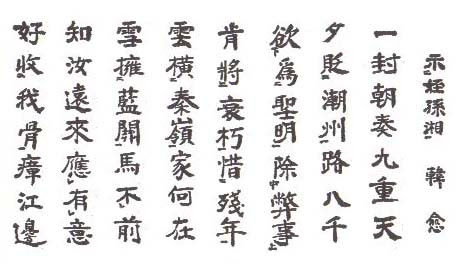 示姪孫湘　韓愈
一封朝奏九重天
夕貶潮州路八千
欲爲聖明除弊事
肯將衰朽惜殘年
雲橫秦嶺家何在
雪擁藍關馬不前
知汝遠來應有意
好收我骨瘴江邊